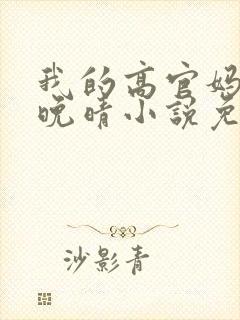 我的高官妈
晚晴小说免
沙影青